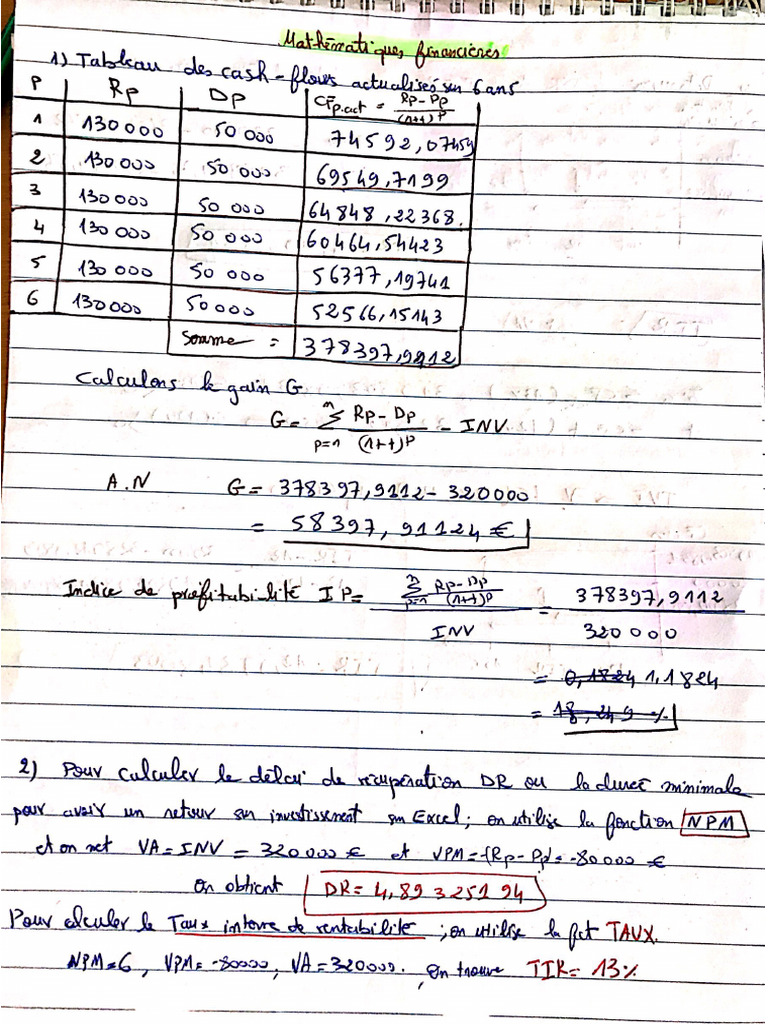 Mathématiques financières
1) Tableau des cash-flows actualisés sur 6 ans
P Rp Dp CFp.act = Rp-Dp/(1+t)^p
1 130000 50 000 74592,07459
2 130 000 50 000 69549,7199
3 130000 50 000 64848,22368.
4 130 000 50 000 60464,54423
5 130 000 50 000 56377,19741
6 130000 50000 52566,15143
Somme = 378397,9112
Calculons le gain G
G = n Σ p=1 Rp-Dp/(1+t)^p - INV
A.N G = 378397,9112 - 320000
= 58397,91124 €
Indice de profitabilité IP = n Σ p=1 Rp-Dp/(1+t)^p / INV = 378397,9112 / 320000
= 0,1824 1,1824
= 18,249 %
2) Pour calculer le délai de récupération DR ou la durée minimale
pour avoir un retour sur investissement sur Excel; on utilise la fonction NPM
et on met VA = INV = 320000 € et VPM = -(Rp - Dp) = -80000 €
on obtient DR = 4,89325194
Pour calculer le Taux interne de rentabilité ; on utilise la fct TAUX.
NPM=6, VPM= -80000, VA=320000. on trouve TIR= 13%